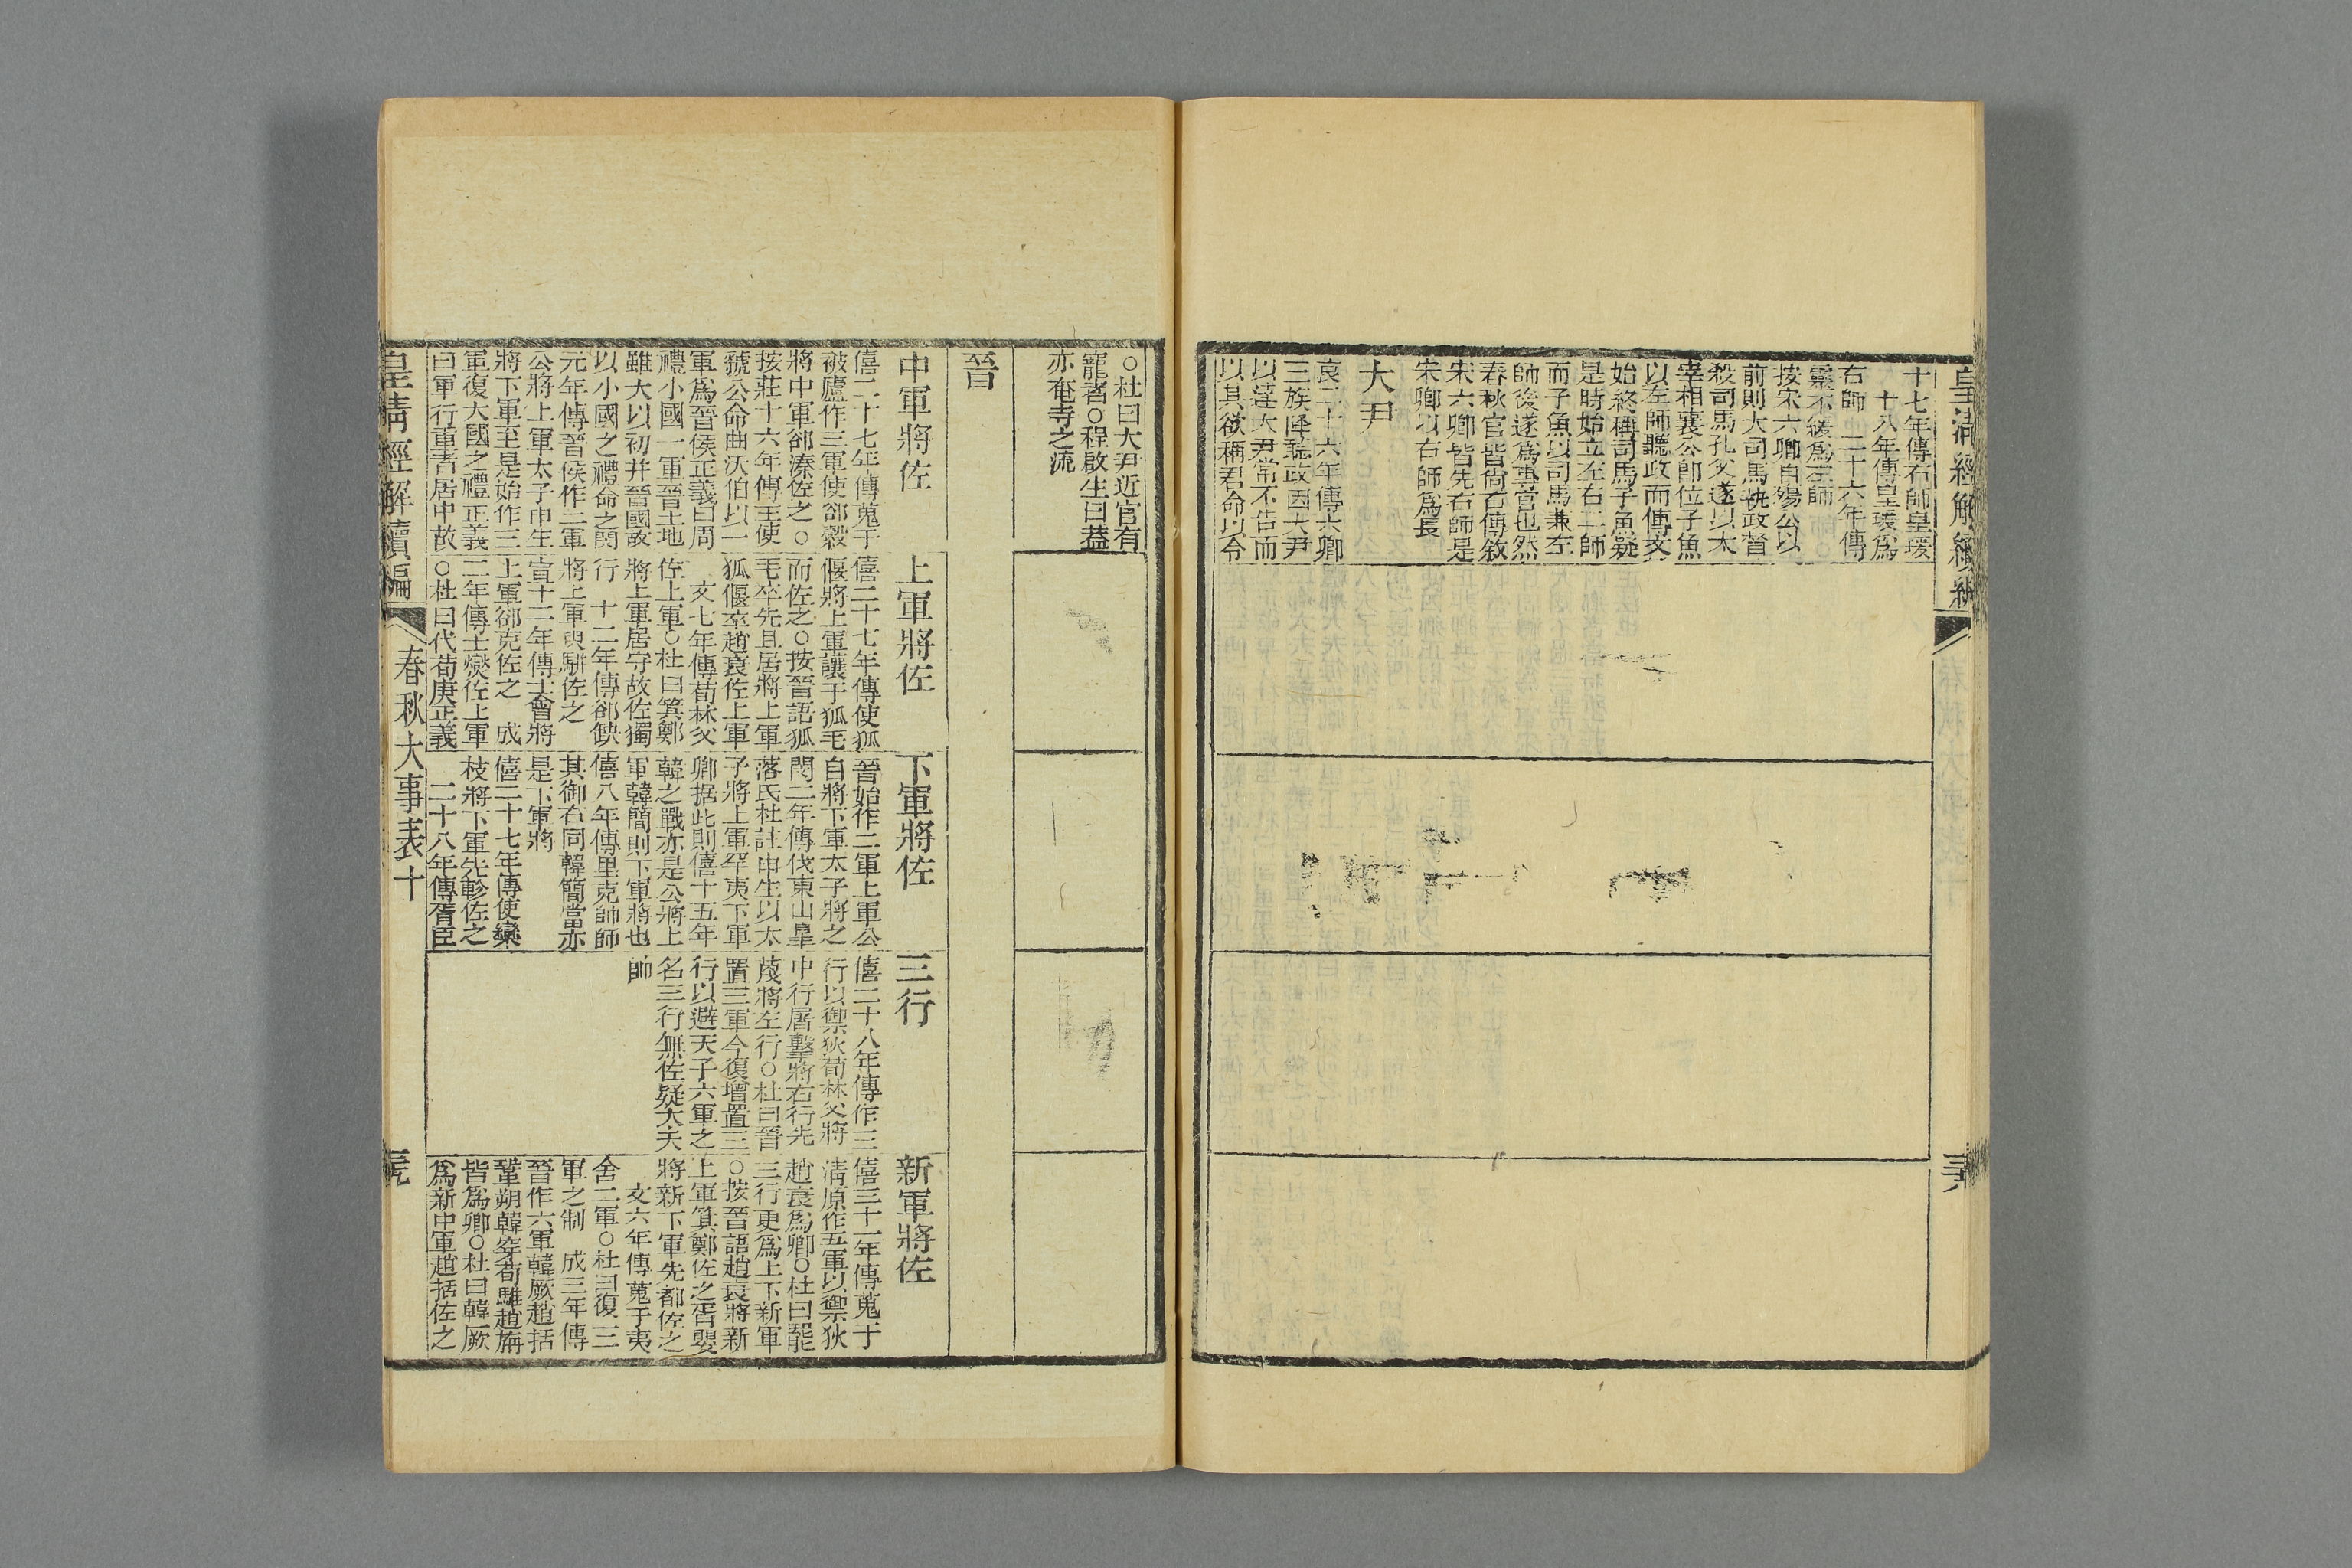 皇清經解續編
十七年傳右師皇瑗
十八年傳皇瑗爲
右師　二十六年傳
靈不緩爲左師
按宋六卿自殤公以
前則大司馬執政督
殺司馬孔父遂以太
宰相襄公卽位子魚
以左師聽政而傳文
始終稱司馬子魚疑
是時始立左右二師
而子魚以司馬兼左
師後遂爲專官也然
春秋官皆尙右傳敘
宋六卿皆先右師是
宋卿以右師爲長
大尹
哀二十六年傳六卿
三族降聽政因大尹
以達大尹常不告而
以其欲稱君命以令
○杜曰大尹近官有
寵者○程啟生曰蓋
亦奄寺之流
晉
中軍將佐
僖二十七年傳蒐于
被廬作三軍使郤縠
將中軍郤溱佐之○
按莊十六年傳王使
虢公命曲沃伯以一
軍爲晉侯正義曰周
禮小國一軍晉土地
雖大以初幷晉國故
以小國之禮命之閔
元年傳晉侯作二軍
公將上軍太子申生
將下軍至是始作三
軍復大國之禮正義
曰軍行重者居中故
上軍將佐
僖二十七年傳使狐
偃將上軍讓于狐毛
而佐之○按晉語狐
毛卒先且居將上軍
狐偃卒趙衰佐上軍
文七年傳荀林父
佐上軍○杜曰箕鄭
將上軍居守故佐獨
行　十二年傳郤缺
將上軍臾駢佐之
宣十二年傳士會將
上軍郤克佐之　成
二年傳士燮佐上軍
○杜曰代荀庚正義
下軍將佐
晉始作二軍上軍公
自將下軍太子將之
閔二年傳伐東山皐
落氏杜註申生以太
子將上軍罕夷下軍
卿据此則僖十五年
韓之戰亦是公將上
軍韓簡則下軍將也
僖八年傳里克帥師
其御右同韓簡當亦
是下軍將
僖二十七年傳使欒
枝將下軍先軫佐之
二十八年傳胥臣
三行
僖二十八年傳作三
行以禦狄荀林父將
中行屠擊將右行先
蔑將左行○杜曰晉
置三軍今復增置三
行以避天子六軍之
名三行無佐疑大夫
帥
新軍將佐
僖三十一年傳蒐于
淸原作五軍以禦狄
趙衰爲卿○杜曰罷
三行更爲上下新軍
○按晉語趙衰將新
上軍箕鄭佐之胥嬰
將新下軍先都佐之
文六年傳蒐于夷
舍二軍○杜曰復三
軍之制　成三年傳
晉作六軍韓厥趙括
鞏朔韓穿荀騅趙旃
皆爲卿○杜曰韓厥
爲新中軍趙括佐之
皇清經解續編
春秋大事表十